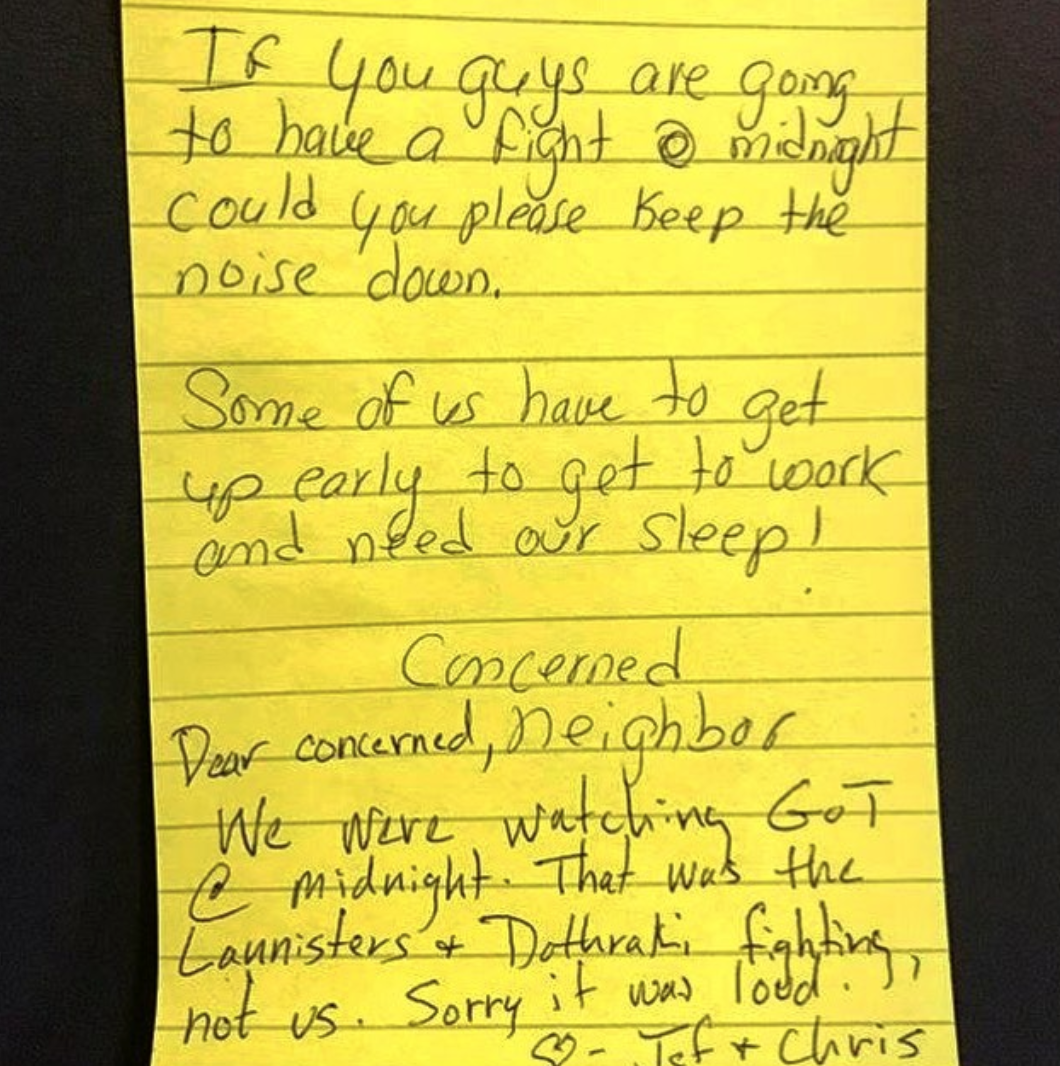 If you guys are going
to have a fight @ midnight
could you please keep the
noise down.
Some of us have to get
up early to get to work
and need our sleep!
Concerned
neighbor
Dear concerned,
We were watching GoT
@ midnight. That was the
Lannisters + Dothraki fighting,
not us. Sorry it was loud.
♡- Jef + Chris